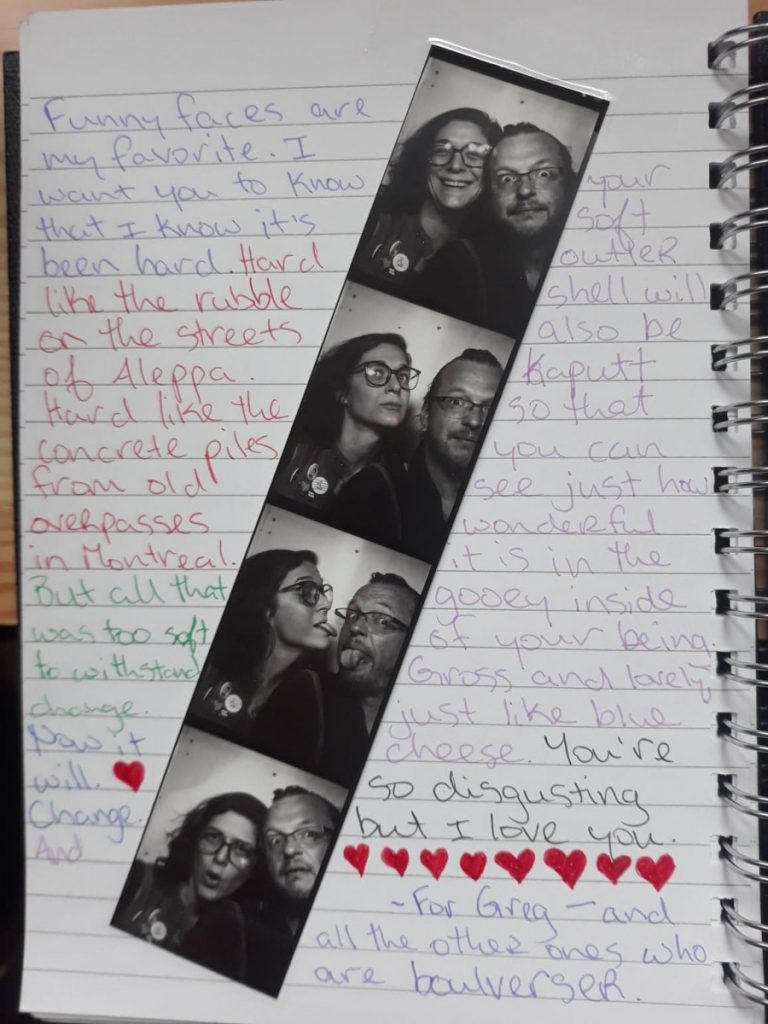 Funny faces are
my favorite. I
want you to know
that I know it's
been hard. Hard
like the rubble
on the streets
of Aleppa.
Hard like the
concrete piles
from old
overpasses
in Montreal.
But all that
was too soft
to withstand
change.
Now it
will.
Change.
And
your
soft
outter
shell will
also be
Kaputt
so that
you can
see just how
wonderful
it is in the
gooey inside
of your being.
Gross and lovely
just like blue
cheese. You're
so disgusting
but I love you.
- For Greg - and
all the other ones who
are boulverser.